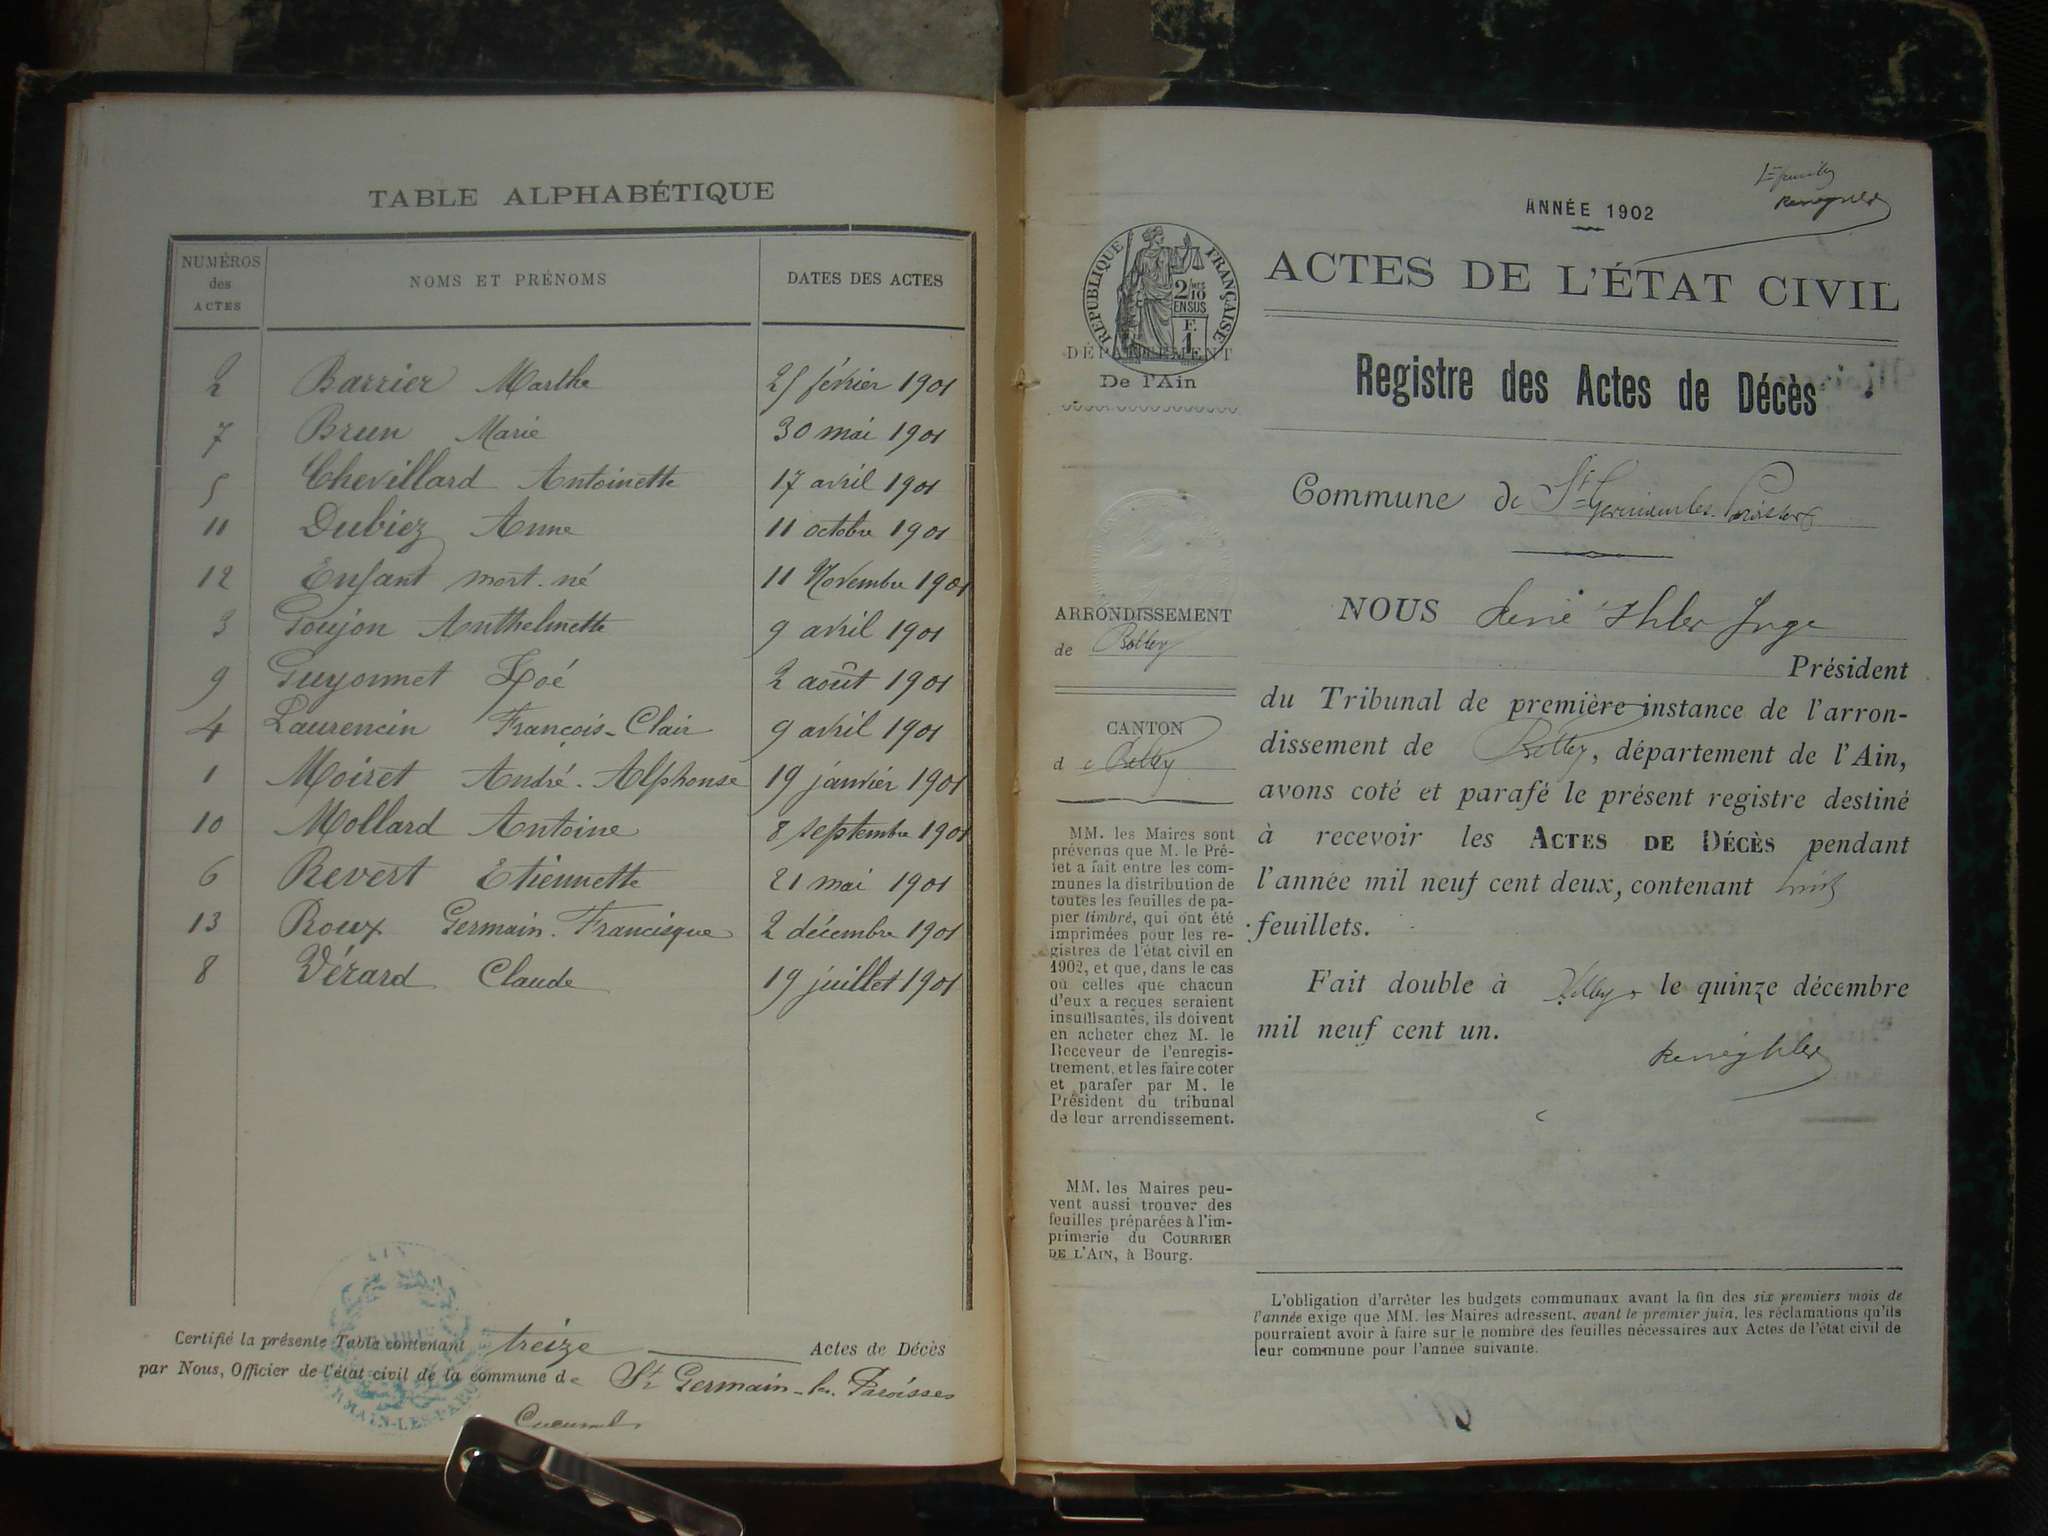 TABLE ALPHABÉTIQUE
NUMÉROS des ACTES NOMS ET PRÉNOMS DATES DES ACTES
2 Barrier Marthe 25 février 1901
7 Brun Marie 30 mai 1901
5 Chevillard Antoinette 17 avril 1901
11 Dubiez Anne 11 octobre 1901
12 Enfant mort-né 11 Novembre 1901
3 Goujon Anthelmette 9 avril 1901
9 Guyonnet Zoé 2 août 1901
4 Laurencin François-Clair 9 avril 1901
1 Moiret André-Alphonse 19 janvier 1901
10 Mollard Antoine 8 septembre 1901
6 Revert Etiennette 21 mai 1901
13 Roux Germain-Francisque 2 décembre 1901
8 Vérard Claude 19 juillet 1901
Certifié la présente Table contenant treize Actes de Décès
par Nous, Officier de l'état civil de la commune de St Germain-les-Paroisses
ANNÉE 1902
RÉPUBLIQUE FRANÇAISE
2/10
EN SUS
F.
1
DÉPARTEMENT
De l'Ain
ARRONDISSEMENT
de Belley
CANTON
de Belley
MM. les Maires sont
prévenus que M. le Pré-
fet a fait entre les com-
munes la distribution de
toutes les feuilles de pa-
pier timbré, qui ont été
imprimées pour les re-
gistres de l'état civil en
1902, et que, dans le cas
où celles que chacun
d'eux a reçues seraient
insuffisantes, ils doivent
en acheter chez M. le
Receveur de l'enregis-
trement, et les faire coter
et parafer par M. le
Président du tribunal
de leur arrondissement.
MM. les Maires peu-
vent aussi trouver des
feuilles préparées à l'im-
primerie du COURRIER
DE L'AIN, à Bourg.
ACTES DE L'ÉTAT CIVIL
Registre des Actes de Décès
Commune de St-Germain-les-Paroisses
NOUS René Ihler Juge
Président
du Tribunal de première instance de l'arron-
dissement de Belley, département de l'Ain,
avons coté et parafé le présent registre destiné
à recevoir les ACTES DE DÉCÈS pendant
l'année mil neuf cent deux, contenant huit
feuillets.
Fait double à Belley, le quinze décembre
mil neuf cent un.
René Ihler
L'obligation d'arrêter les budgets communaux avant la fin des six premiers mois de
l'année exige que MM. les Maires adressent, avant le premier juin, les réclamations qu'ils
pourraient avoir à faire sur le nombre des feuilles nécessaires aux Actes de l'état civil de
leur commune pour l'année suivante.